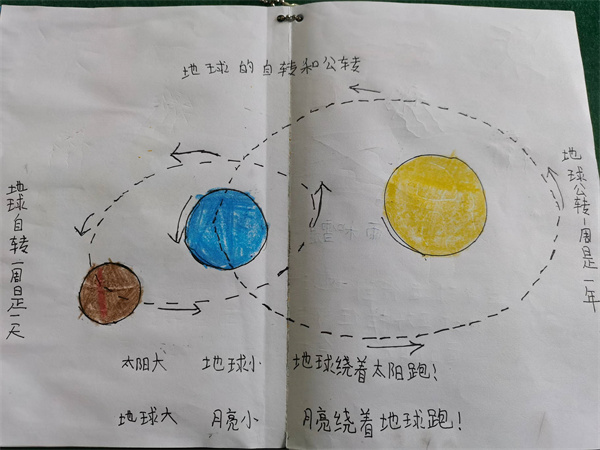 地球的自转和公转
地球自转一周是一天
地球公转一周是一年
太阳大 地球小 地球绕着太阳跑!
地球大 月亮小 月亮绕着地球跑!